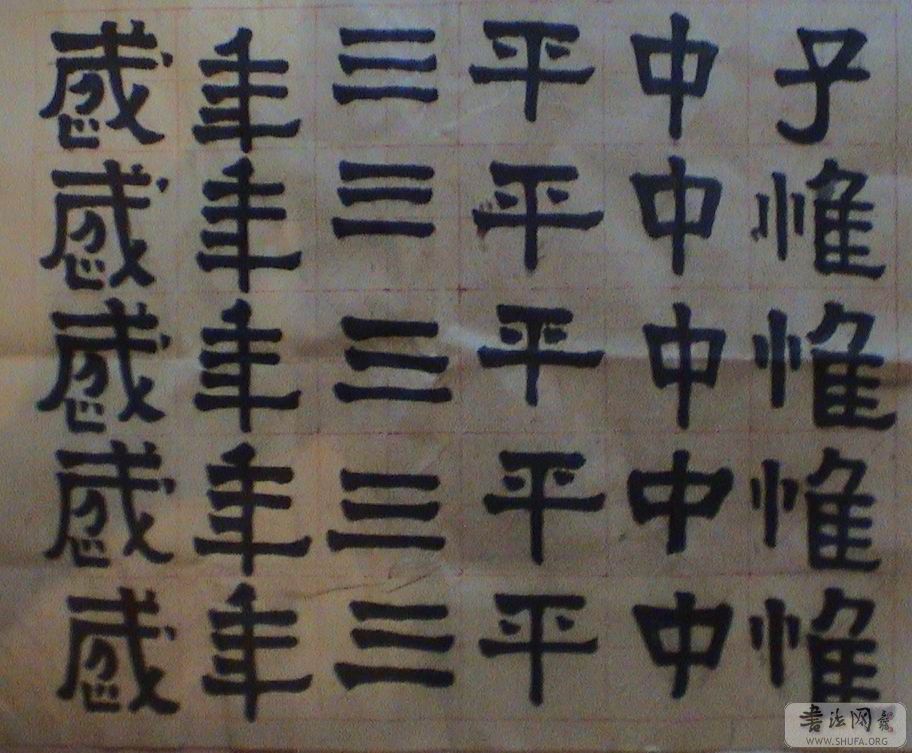 子惟惟惟惟
中中中中中
平平平平平
三三三三三
年年年年年
歲歲歲歲歲
書法网
WWW.SHUFA.ORG